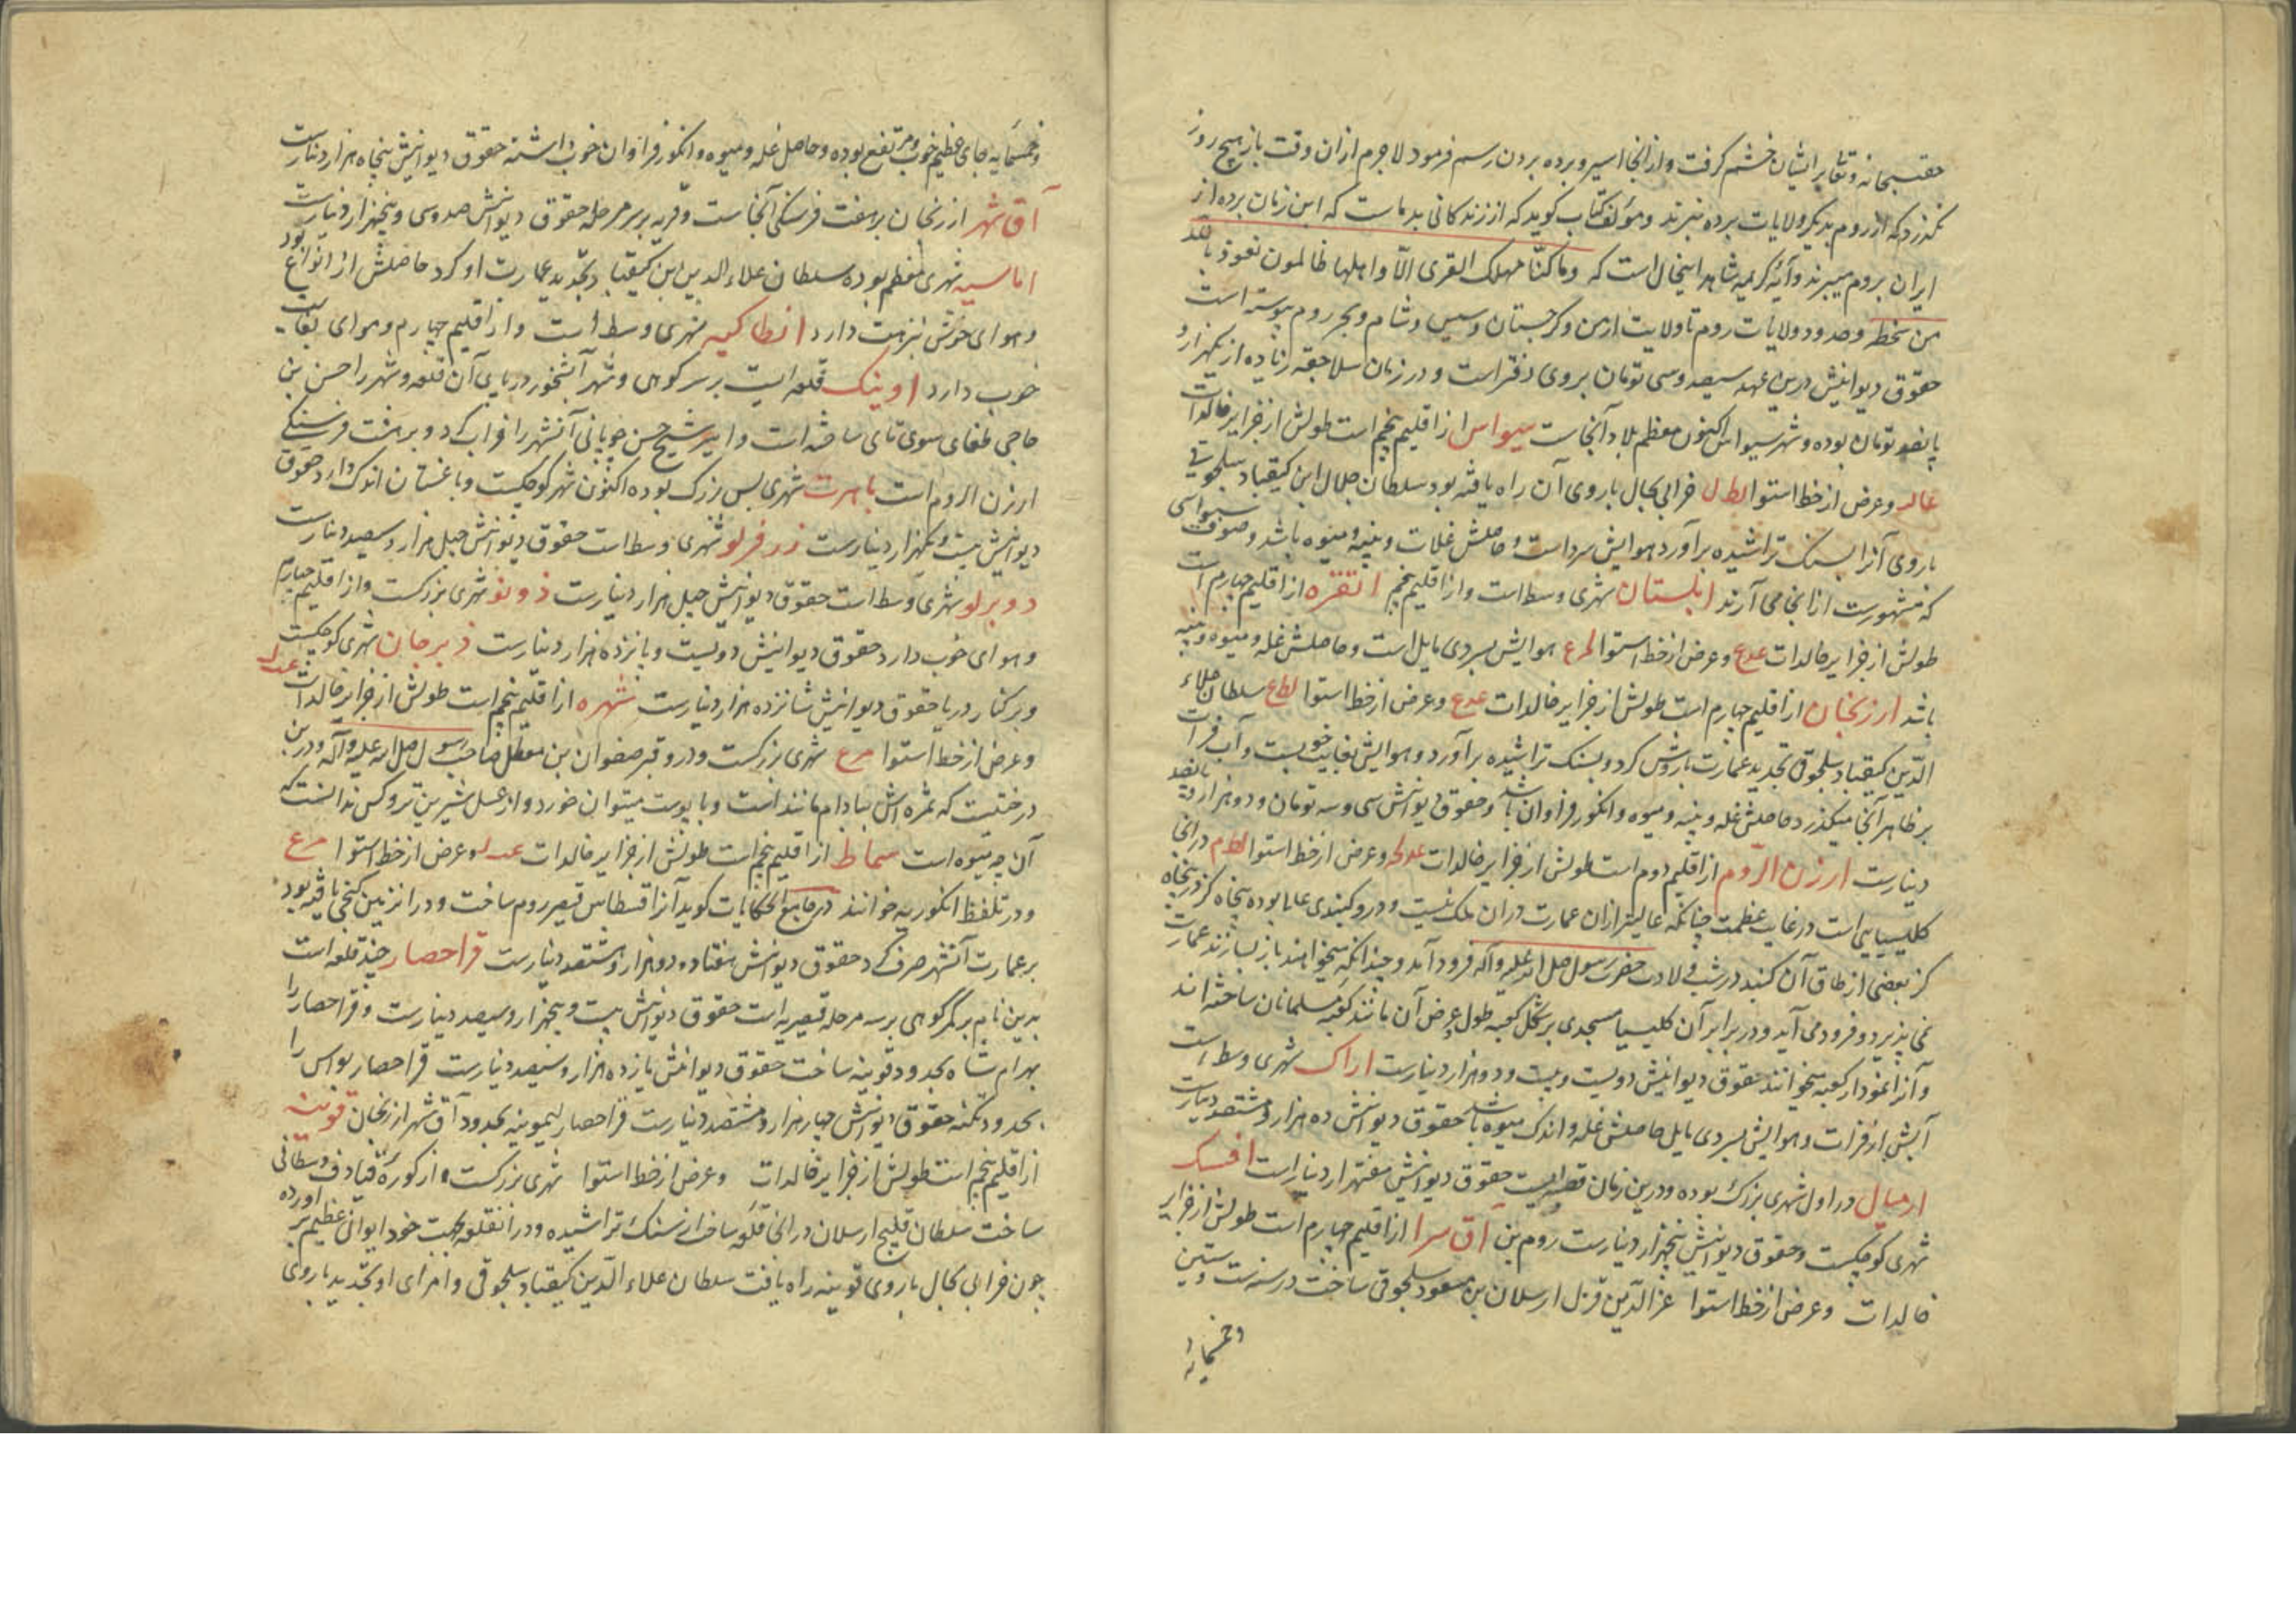 حقسبحانه و تعالی بر ایشان خشم گرفت و از آنجا اسیر و برده بردن رسم فرمود لاجرم از آن وقت باز هیچ روز
نگذرد که از روم بدیگر ولایات برده نبرند و مؤلف کتاب گوید که از زندگانی بد ماست که این زمان برده از
ایران بروم میبرند و آیه کریمه شاهد اینحال است که وما کنّا مهلک القری الّا و اهلها ظالمون نعوذ بالله
من سخطه و حدود ولایات روم تا ولایت ارمن و گرجستان و سیس و شام و بحر روم پیوسته است
حقوق دیوانیش درین عهد سیصد و سی تومان بر روی دفتر است و در زمان سلاجقه زیاده از یکهزار و
پانصد تومان بوده و شهر سیواس اکنون معظم بلاد آنجاست سیواس از اقلیم پنجم است طولش از جزایر خالدات
و عرض از خط استوا خرابی بحال باروی آن راه یافته بود سلطان جلال ابن کیقباد سلجوقی
باروی آنرا بسنگ تراشیده برآورد هوایش سرد است و حاصلش غلات و پنبه و میوه باشد و صوف سیواسی
که مشهورست از آنجا می آرند ابلستان شهری وسط است و از اقلیم پنجم انقره از اقلیم چهارم است
طولش از جزایر خالدات و عرض از خط استوا هوایش بسردی مایل است و حاصلش غله و میوه و پنبه
باشد ارزنجان از اقلیم چهارم است طولش از جزایر خالدات و عرض از خط استوا سلطان علاء
الدّین کیقباد سلجوقی تجدید عمارت باروش کرد و بسنگ تراشیده برآورد و هوایش بغایت خوبست و آب فرات
بر ظاهر آنجا میگذرد حاصلش غله و پنبه و میوه و انگور فراوان باشد و حقوق دیوانش سی و سه تومان و دو هزار و پانصد
دینارست ارزن الرّوم از اقلیم دوم است طولش از جزایر خالدات و عرض از خط استوا در آنجا
کلیسیایی است در غایت عظمت چنانکه عالیتر از آن عمارت در آن ملک نیست و درو گنبدی عالی بوده پنجاه گز در پنجاه
گز بعضی از طاق آن گنبد در شب ولادت حضرت رسول صلی الله علیه وآله فرود آمد و چندانکه میخواهند باز بسازند عمارت
نمی پذیرد و فرود می آید و در برابر آن کلیسیا مسجدی بر شکل کعبه طول و عرض آن مانند کعبه مسلمانان ساخته اند
و آنرا نمودار کعبه میخوانند حقوق دیوانیش دویست و بیست و دو هزار دینارست اراک شهری وسط است
آبش از فرات و هوایش بسردی مایل حاصلش غله و اندک میوه باشد حقوق دیوانش ده هزار و هشتصد دینارست
ارمیال در اول شهری بزرگ بوده و درین زمان حقوق دیوانیش هفتهزار دینار است افسک
شهری کوچکست و حقوق دیوانیش پنجهزار دینارست آق سرا از اقلیم چهارم است طولش از جزایر
خالدات و عرض از خط استوا عز الدّین قزل ارسلان بن مسعود سلجوقی ساخت در سنه ست و ستین
و خمسمایه
و خمسمایه جای عظیم خوب و مرتفع بوده و حاصل غله و میوه و انگور فراوان خوب داشته حقوق دیوانیش پنجاه هزار دینارست
آق شهر ارزنجان بر هفت فرسنگی آنجاست و قریه بر سر مرحله حقوق دیوانش صد و سی و پنجهزار دینارست
اماسیه شهری معظم بوده سلطان علاء الدین ابن کیقباد تجدید عمارت او کرد حاصلش از انواع بود
و هوای خوش نزهت دارد انطاکیه شهری وسط است و از اقلیم چهارم و هوای بغایت
خوب دارد اونیک قلعه ایست بر سر کوهی و شهر آبشخور در پای آن قلعه و شهر را حسن بن
حاجی طغای سوی تای ساخته است و امیر شیخ حسن چوپانی آنشهر را خراب کرد و بر هفت فرسنگی
ارزن الروم است بابرت شهری بس بزرگ بوده اکنون شهر کوچکیست و باغستان اندک دارد حقوق
دیوانیش بیست و یکهزار دینارست زرفرلو شهری وسط است حقوق دیوانیش چهل هزار و سیصد دینارست
دوبرلو شهری وسط است حقوق دیوانیش چهل هزار دینارست دونو شهری بزرگست و از اقلیم چهارم
و هوای خوب دارد حقوق دیوانیش دویست و پانزده هزار دینارست دبرجان شهری کوچکیست
و بر کنار دریا حقوق دیوانیش شانزده هزار دینارست شهره از اقلیم پنجم است طولش از جزایر خالدات
و عرض از خط استوا شهری بزرگست و درو قبر صفوان بن معطل صاحب رسول صلی الله علیه وآله و درین
درختیست که ثمره اش ببادام مانند است و با پوست میتوان خورد و از عسل شیرین تر و کس ندانست که
آن چه میوه است سماط از اقلیم پنجم است طولش از جزایر خالدات و عرض از خط استوا
و در تلفظ انکوریه خوانند در جامع الحکایات گوید آنرا قسطاس قیصر روم ساخت و در آن زمین گنجی یافته بود
بر عمارت آنشهر صرف کرد حقوق دیوانش هفتاد و دو هزار و هشتصد دینارست قراحصار چند قلعه است
بدین نام بر گمر کوهی بر سه مرحله قیصریه است حقوق دیوانش بیست و پنجهزار و سیصد دینارست و قراحصار را
بهرام شاه بحدود قونیه ساخت حقوق دیوانش یازده هزار و سیصد دینارست قراحصار بواس را
بحدود نکته حقوق دیوانش چهار هزار و هشتصد دینارست قراحصار لیمونیه بحدود آق شهر ارزنجان قونیه
از اقلیم پنجم است طولش از جزایر خالدات و عرض از خط استوا شهری بزرگست و از کوره قبادق
ساخت سلطان قلیج ارسلان در آنجا قلعه ساخت از سنگ تراشیده و در آنقلعه جهت خود ایوانی عظیم برآورده
چون خرابی بحال باروی قونیه راه یافت سلطان علاء الدّین کیقباد سلجوقی و امرای او تجدید باروی